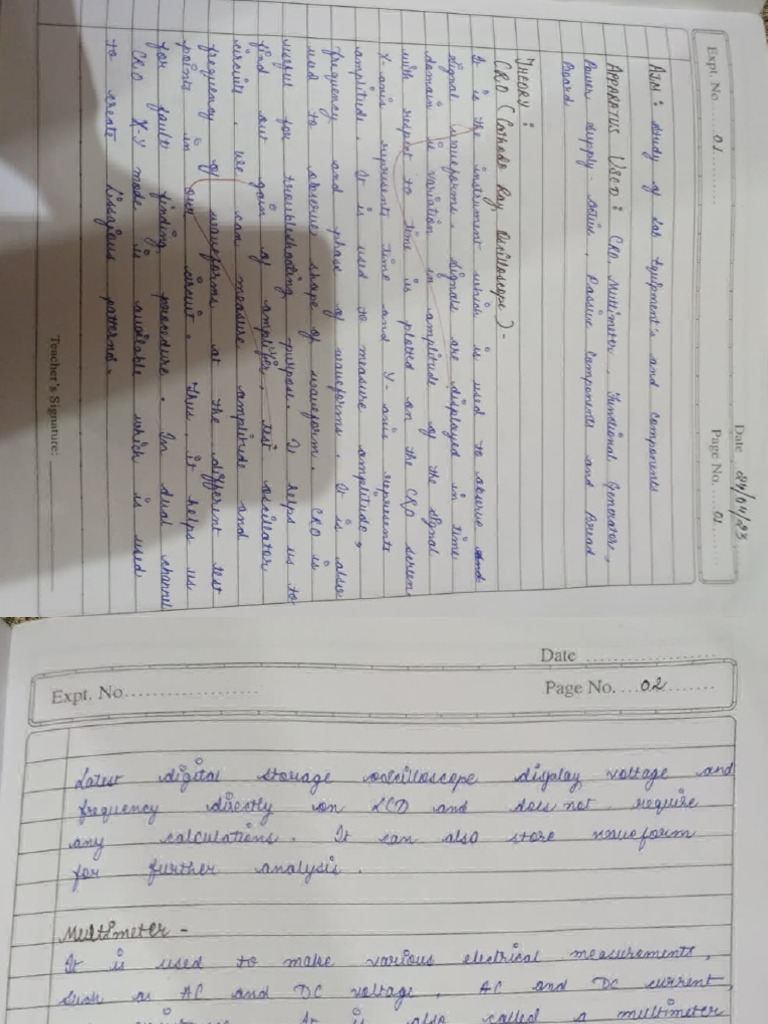 Expt. No. 01
Date 24/04/23
Page No. 01
AIM : Study of Lab Equipment's and components
APPARATUS USED : CRO, Multimeter, Functional Generator,
Power supply - Active, Passive Components and Bread
Board.
THEORY :
CRO (Cathode Ray Oscilloscope) -
It is the instrument which is used to observe and
signal waveforms. Signals are displayed in time
domain i.e variation in amplitude of the signal
with respect to time is plotted on the CRO screen
X-axis represents time and Y-axis represents
amplitude. It is used to measure amplitude,
frequency and phase of waveforms. It is also
used to observe shape of waveform. CRO is
useful for troubleshooting purpose. It helps us to
find out gain of amplifier, test oscillator
circuits. We can measure amplitude and
frequency of waveforms at the different test
points in our circuit. Thus, it helps us
for fault finding procedure. In dual channel
CRO X-Y mode is available which is used
to create Lissajous patterns.
Teacher's Signature:
Date
Expt. No.
Page No. 02
Latest digital storage oscilloscope display voltage and
frequency directly on LCD and does not require
any calculations. It can also store waveform
for further analysis.
Multimeter -
It is used to make various electrical measurements,
such as AC and DC voltage, AC and DC current,
It is also called a multimeter